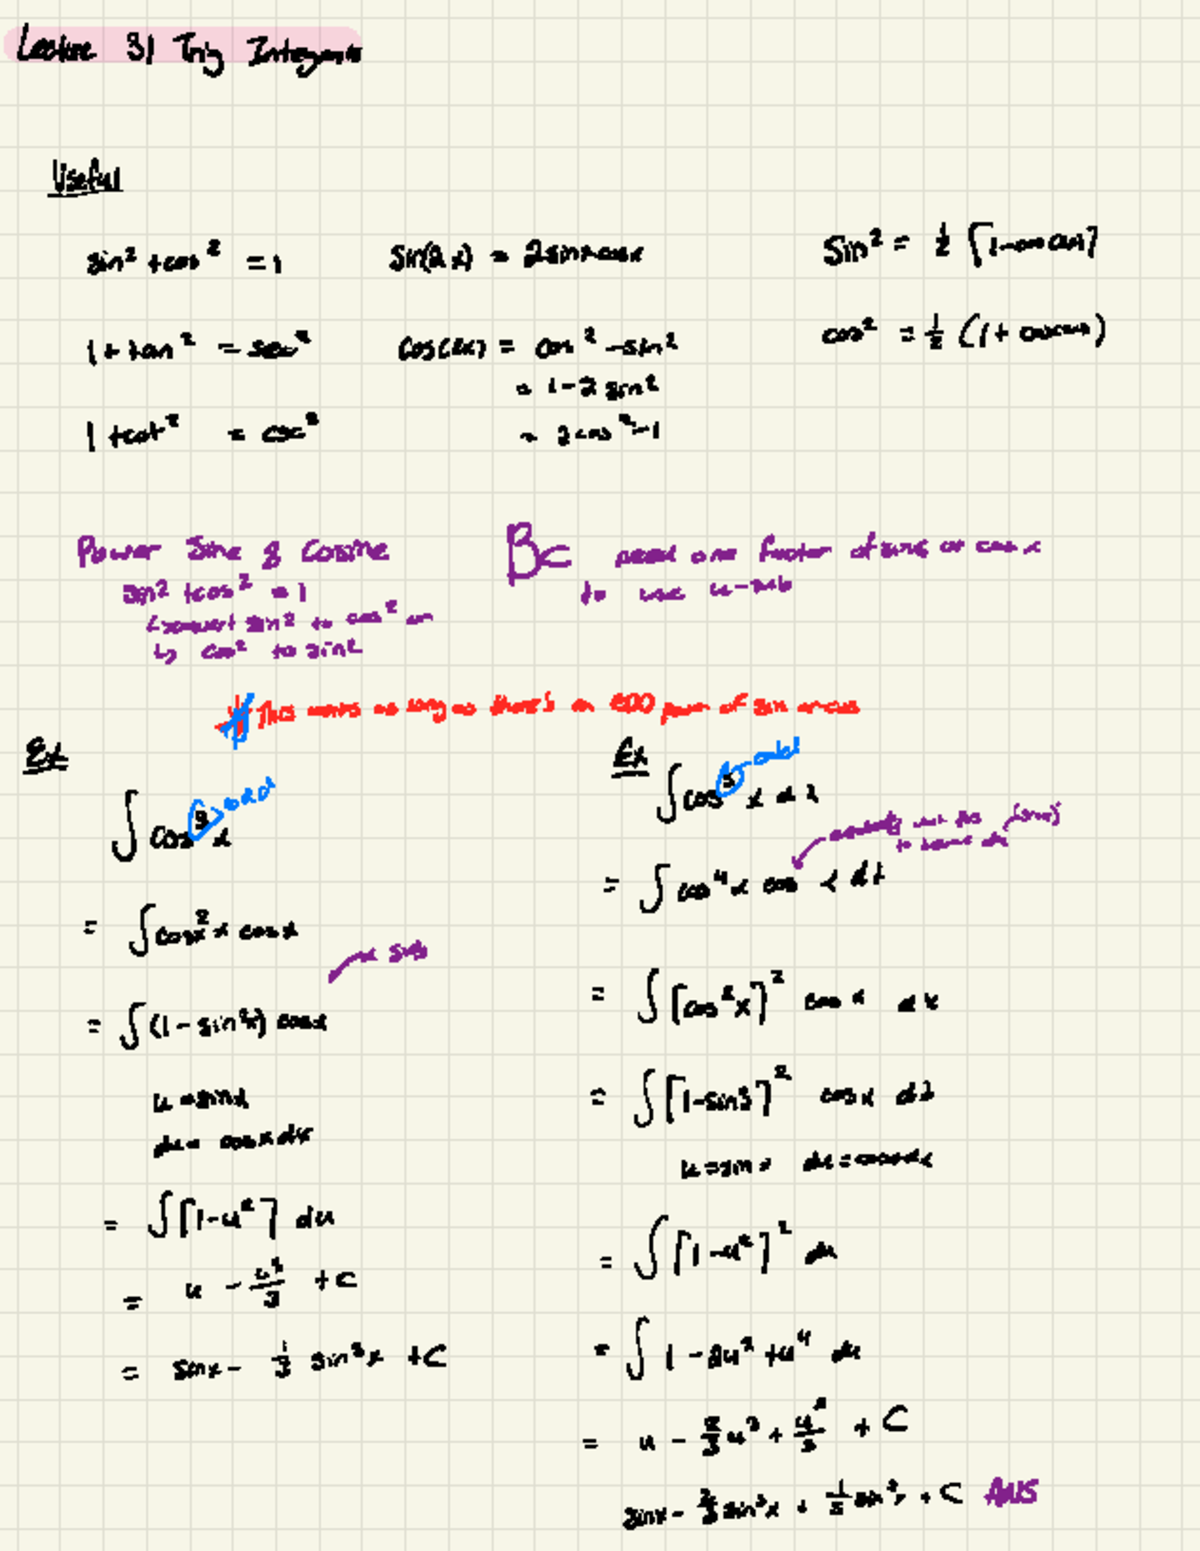 Lecture 31 Trig Integrals
Useful
sin² + cos² = 1
1 + tan² = sec²
1 + cot² = csc²
sin(2x) = 2sinx cosx
cos(2x) = cos² - sin²
= 1 - 2 sin²
= 2cos² - 1
Sin² = ½ [1 - cos(2x)]
cos² = ½ (1 + cos(2x))
Power Sine & Cosine
sin² + cos² = 1
convert sin² to cos² or
↳ cos² to sin²
Bc need one factor of sinx or cos x
to use u-sub
This works as long as there's an ODD power of sin or cos
Ex
∫ cos³ x odd
= ∫ cosx² x cosx
= ∫ (1 - sin²x) cosx u sub
u = sinx
du = cosx dx
= ∫ [1 - u²] du
= u - u³/3 + C
= sinx - ⅓ sin³x + C
Ex
∫ cos⁵ x dx odd
= ∫ cos⁴ x cos x dx want this (sinx)
to become du
= ∫ [cos²x]² cos x dx
= ∫ [1 - sin²]² cosx dx
u = sin x du = cosx dx
= ∫ [1 - u²]² du
= ∫ 1 - 2u² + u⁴ du
= u - ⅔ u³ + u⁵/5 + C
sinx - ⅔ sin³x + ⅕ sin⁵x + C ANS